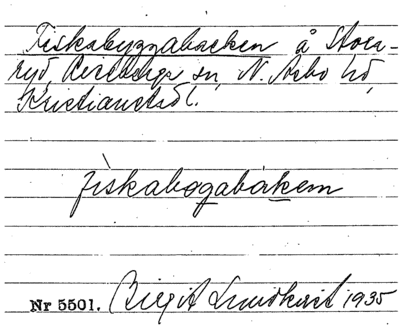 Fiskabyggabacken å Stora-
ryd, Perstorps sn, N. Åsbo hd,
Kristianstads l.
fìskabøgabàkem
Nr 5501. Birgit Lundkvist 1935